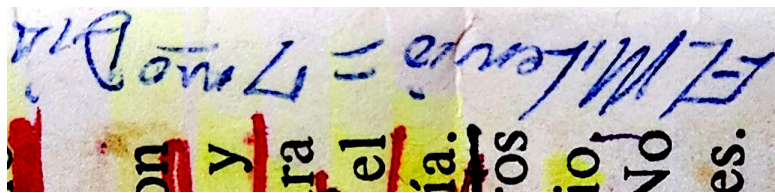 EL Milenio = 7mo Día
on
y
ra
el
ía.
ros
io,
No
es.